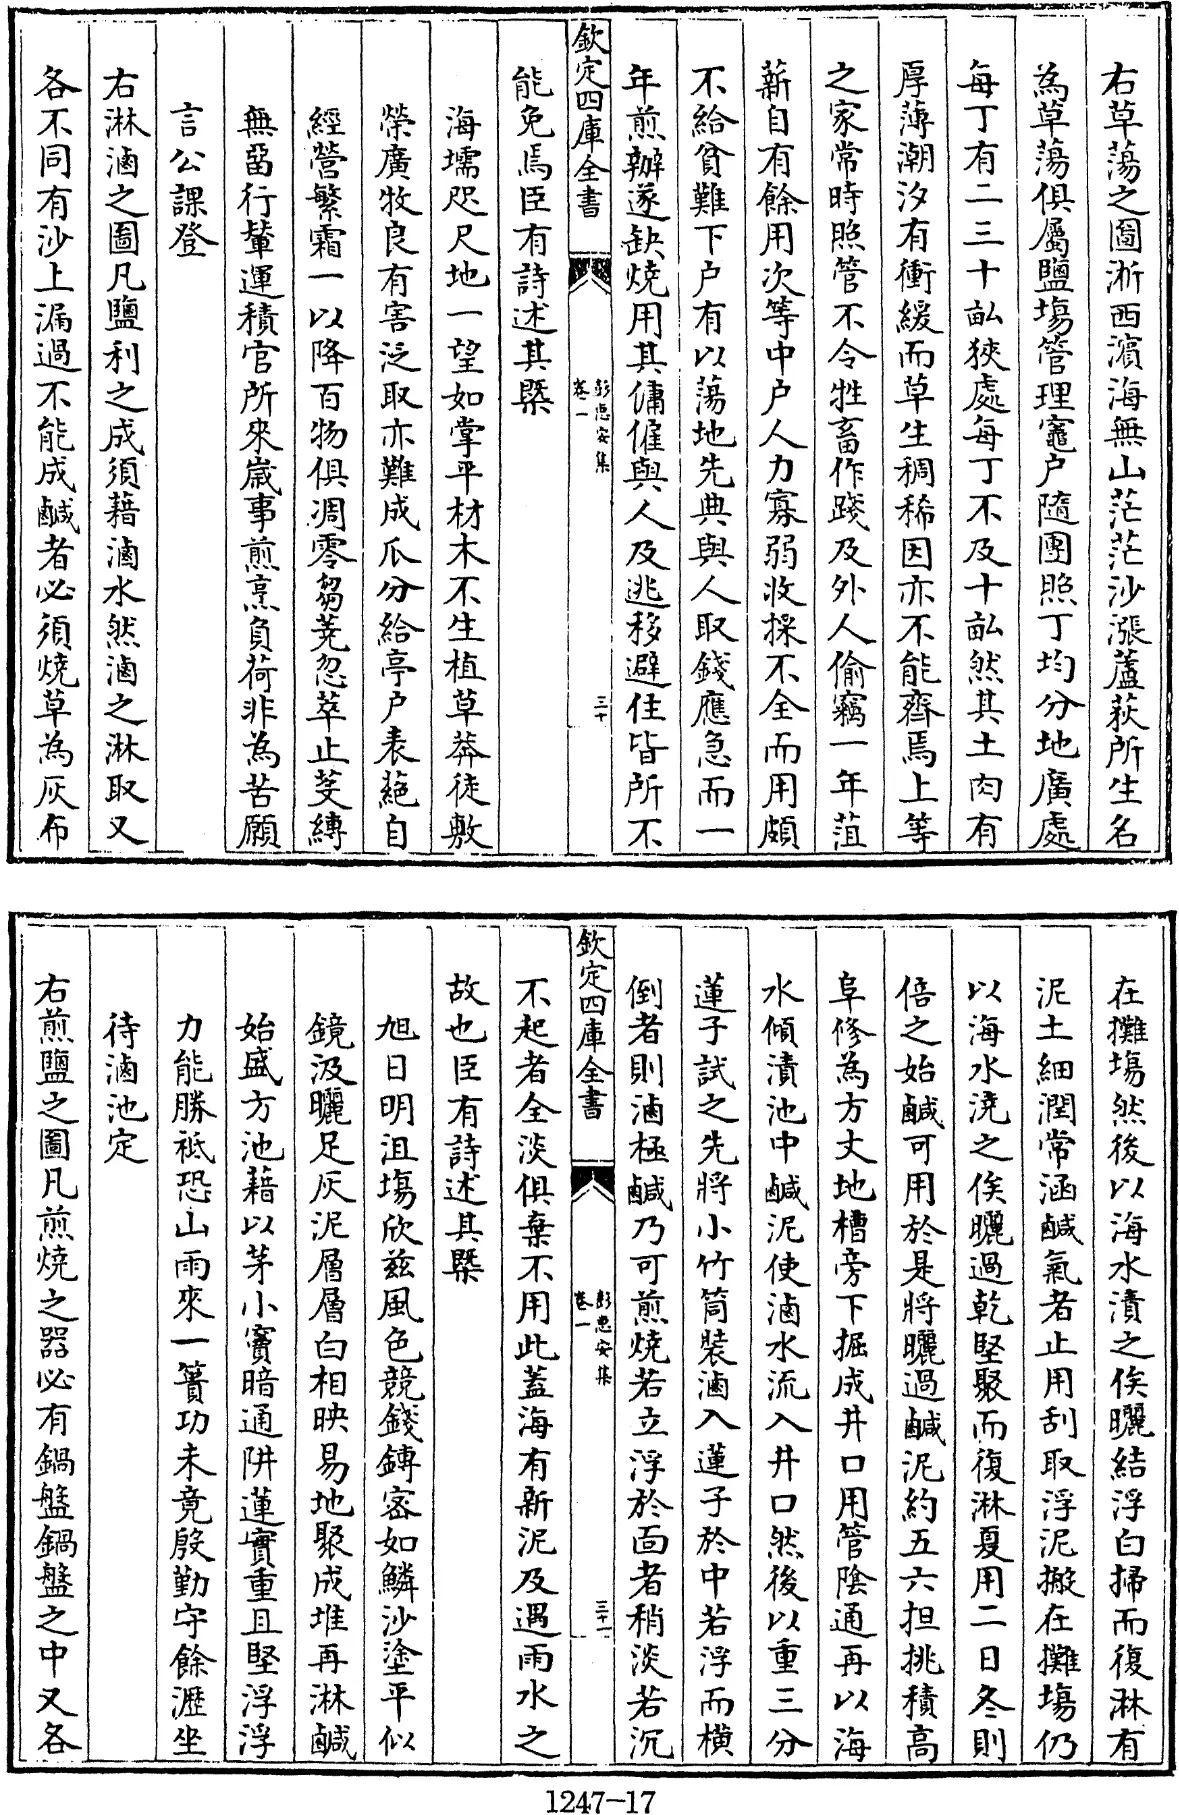 右草蕩之圖淅西濱海無山茫茫沙漲蘆荻所生名
為草蕩俱屬鹽塲管理竈户隨團照丁均分地廣處
每丁有二三十畝狹處每丁不及十畝然其土肉有
厚薄潮汐有衝緩而草生稠稀因亦不能齊焉上等
之家常時照管不令牲畜作踐及外人偷竊一年葅
薪自有餘用次等中户人力寡弱收採不全而用頗
不給貧難下户有以蕩地先典與人取錢應急而一
年煎辦遂缺燒用其傭僱與人及逃移避住皆所不
欽定四庫全書
彭惠安集
卷一
三十
能免焉臣有詩述其槩
海壖咫尺地一望如掌平材木不生植草莽徒敷
榮廣牧良有害泛取亦難成瓜分給亭户表蕝自
經營繁霜一以降百物俱凋零芻蕘忽萃止芟縛
無留行輦運積官所來嵗事煎烹負荷非為苦願
言公課登
右淋滷之圖凡鹽利之成須藉滷水然滷之淋取又
各不同有沙上漏過不能成鹹者必須燒草為灰布
在攤塲然後以海水漬之俟曬結浮白掃而復淋有
泥土細潤常涵鹹氣者止用刮取浮泥搬在攤塲仍
以海水澆之俟曬過乾堅聚而復淋夏用二日冬則
倍之始鹹可用於是將曬過鹹泥約五六担挑積高
阜修為方丈地槽旁下掘成井口用管陰通再以海
水傾漬池中鹹泥使滷水流入井口然後以重三分
蓮子試之先將小竹筒裝滷入蓮子於中若浮而橫
倒者則滷極鹹乃可煎燒若立浮於面者稍淡若沉
欽定四庫全書
彭惠安集
卷一
三十一
不起者全淡俱棄不用此蓋海有新泥及遇雨水之
故也臣有詩述其槩
旭日明沮塲欣兹風色競錢鎛密如鱗沙塗平似
鏡汲曬足灰泥層層白相映易地聚成堆再淋鹹
始盛方池藉以茅小竇暗通阱蓮實重且堅浮浮
力能勝祗恐山雨來一簣功未竟殷勤守餘瀝坐
待滷池定
右煎鹽之圖凡煎燒之器必有鍋盤鍋盤之中又各
1247-17